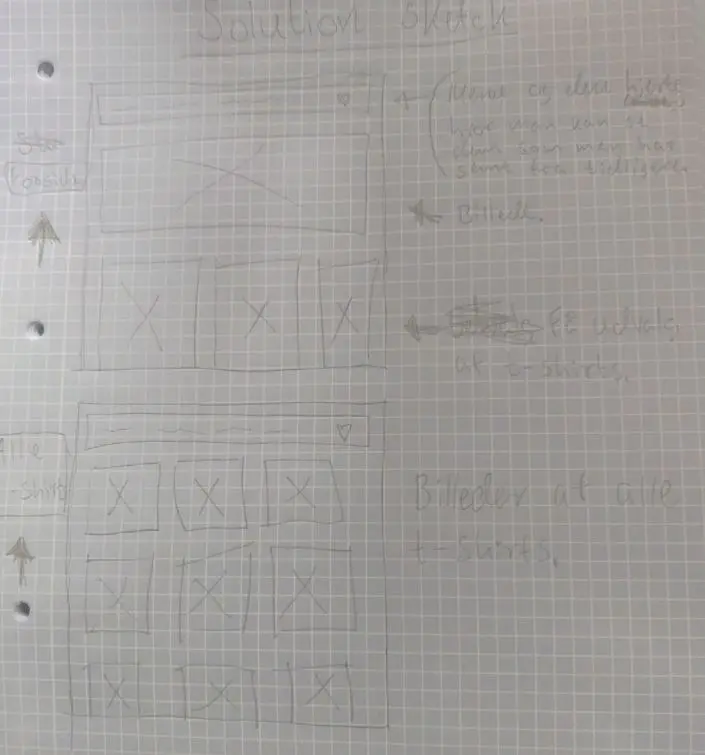 Solution Sketch
Forside
Menu og den hjerte,
hvor man kan se
dem som man har
Billede.
Et udvalg
af t-shirts.
Alle
-shirts
Billeder af alle
t-shirts.